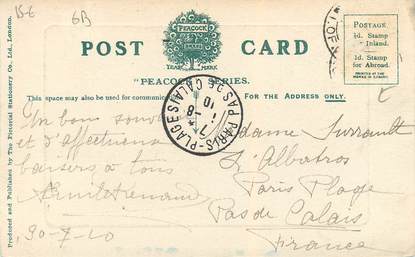 15-E
6B
PEACOCK
BRAND
TRADE MARK
POST CARD
"PEACOCK" SERIES.
POSTAGE
½d. Stamp
Inland.
1d. Stamp
for Abroad.
PRINTED AT THE
WORKS IN LONDON
This space may also be used for communic
FOR THE ADDRESS ONLY.
Produced and Published by The Pictorial Stationery Co. Ltd., London.
PARIS-PLAGE
PAS DE CALAIS
1 -8
10
Un bon souv
et d'affectueu
baisers à tous
30-7-10
Madame Surrault
L'Albatros
Paris Plage
Pas de Calais
France